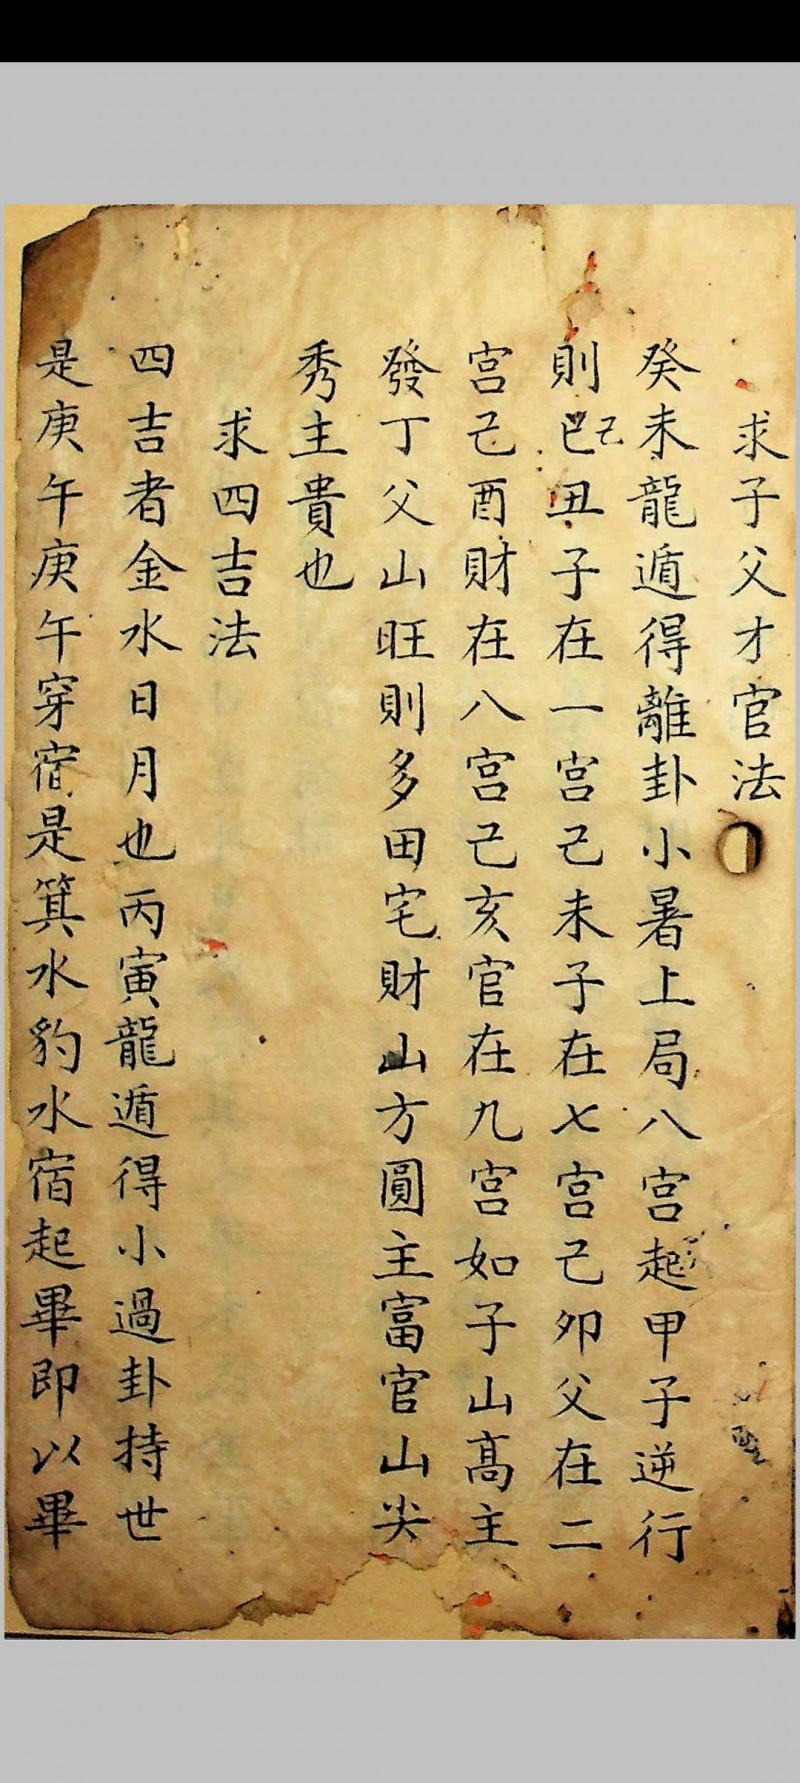 求子父才官法
癸未龍遁得離卦小暑上局八宮起甲子逆行
則己丑子在一宮己未子在七宮己卯父在二
宮己酉財在八宮己亥官在九宮如子山高主
發丁父山旺則多田宅財山方圓主富官山尖
秀主貴也
求四吉法
四吉者金水日月也丙寅龍遁得小過卦持世
是庚午庚午穿宿是箕水豹水宿起畢即以畢